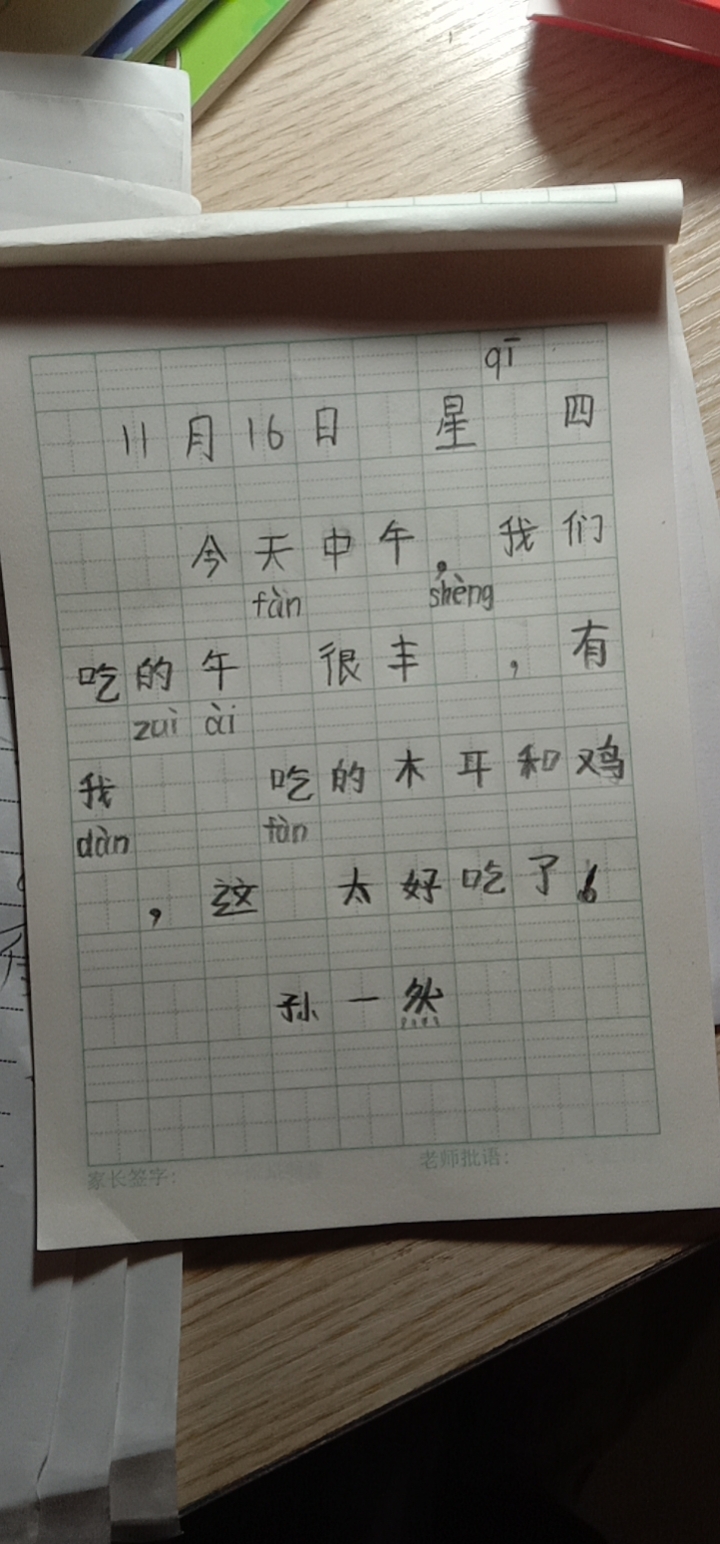 qī
11月16日 星 四
今天中午，我们
fàn shèng
吃的午 很丰 ，有
zuì ài
我 吃的木耳和鸡
dàn fàn
，这 太好吃了！
孙一然
家长签字： 老师批语：